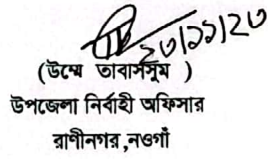 ২৩/১১/২৩
(উম্মে তাবাসসুম )
উপজেলা নির্বাহী অফিসার
রাণীনগর,নওগাঁ